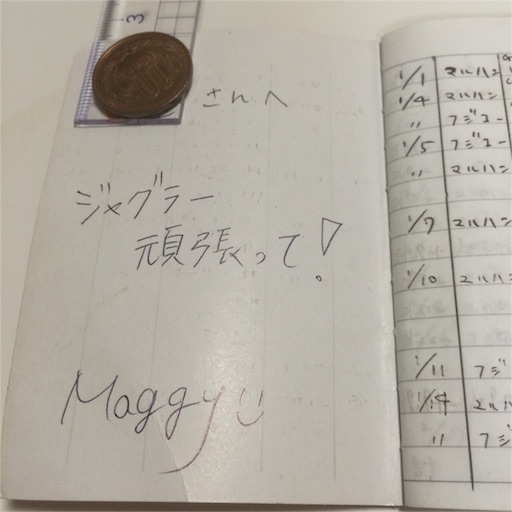 3
さんへ
ジャグラー
頑張って!
Maggy
1/1 マルハン
1/4 マルハン
〃 フジコー
1/5 フジコー
〃 マルハン
1/7 マルハン
1/10 マルハン
1/11 フジ
1/14 マルハ
〃 フジ